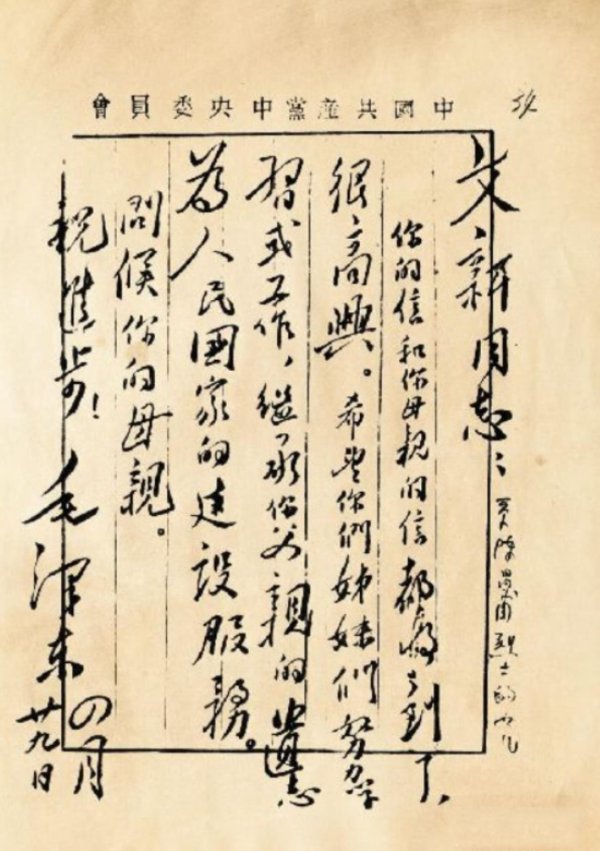 中國共産黨中央委員會
文新同志：
系陈昌甫烈士的女儿
你的信和你母親的信都收到了，
很高興。希望你們姊妹們努力學
習或工作，繼承你父親的遺志
為人民國家的建設服務。
問候你的母親。
祝進步！
毛澤東
四月
廿九日